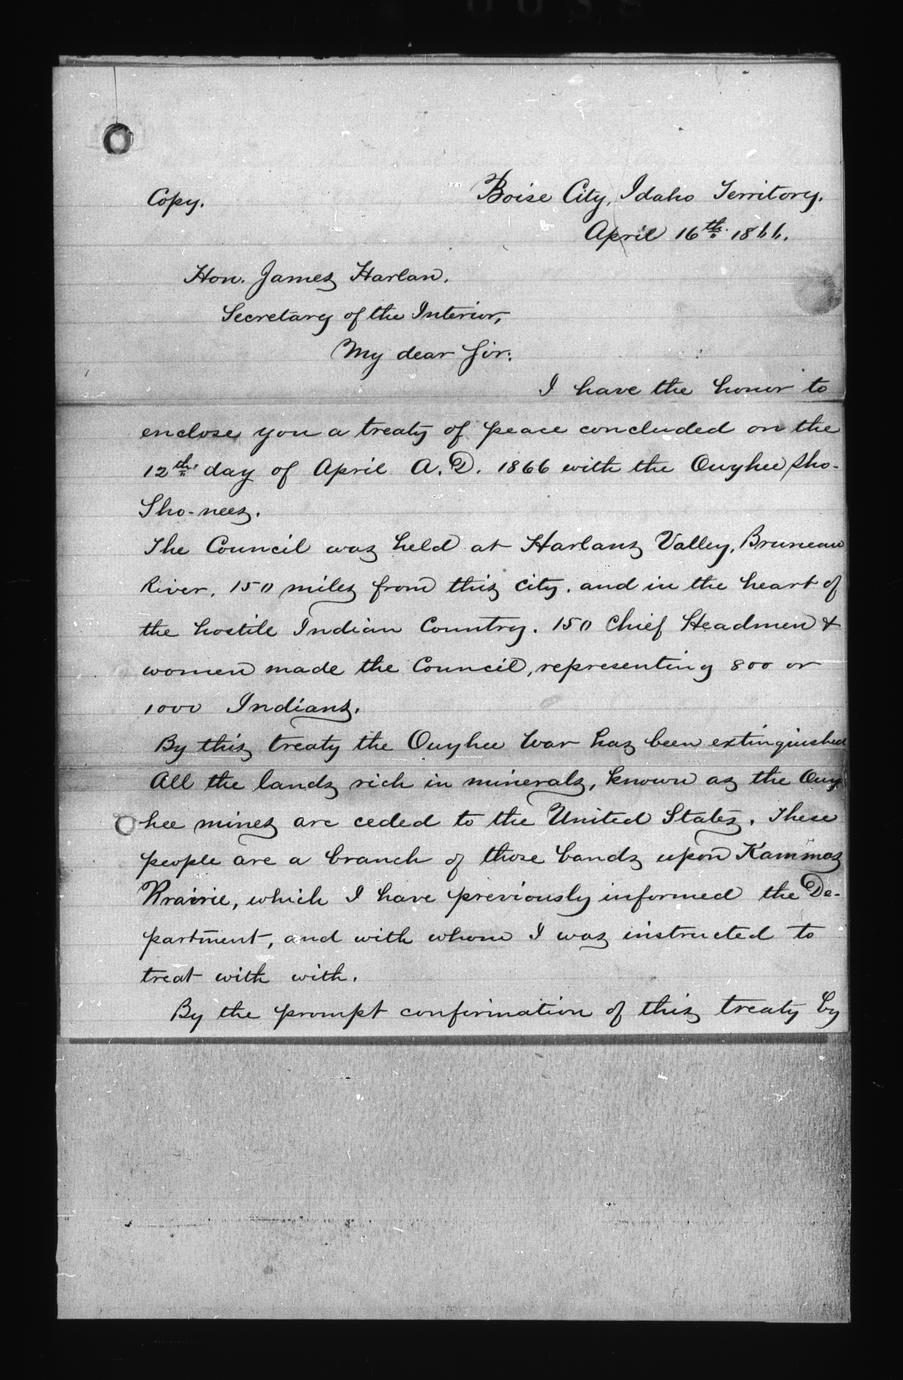 Copy.
Boise City, Idaho Territory.
April 16th 1866.
Hon. James Harlan.
Secretary of the Interior,
My dear Sir:
I have the honor to
enclose you a treaty of peace concluded on the
12th day of April A.D. 1866 with the Owyhee Sho-
Sho-nees.
The Council was held at Harlans Valley, Bruneau
River, 150 miles from this city. and in the heart of
the hostile Indian Country. 150 Chief Headmen &
women made the Council, representing 800 or
1000 Indians.
By this treaty the Owyhee War has been extinguished
All the lands rich in minerals, known as the Owy
hee mines are ceded to the United States. These
people are a branch of those bands upon Kammas
Prairie, which I have previously informed the De-
partment, and with whom I was instructed to
treat with with.
By the prompt confirmation of this treaty by